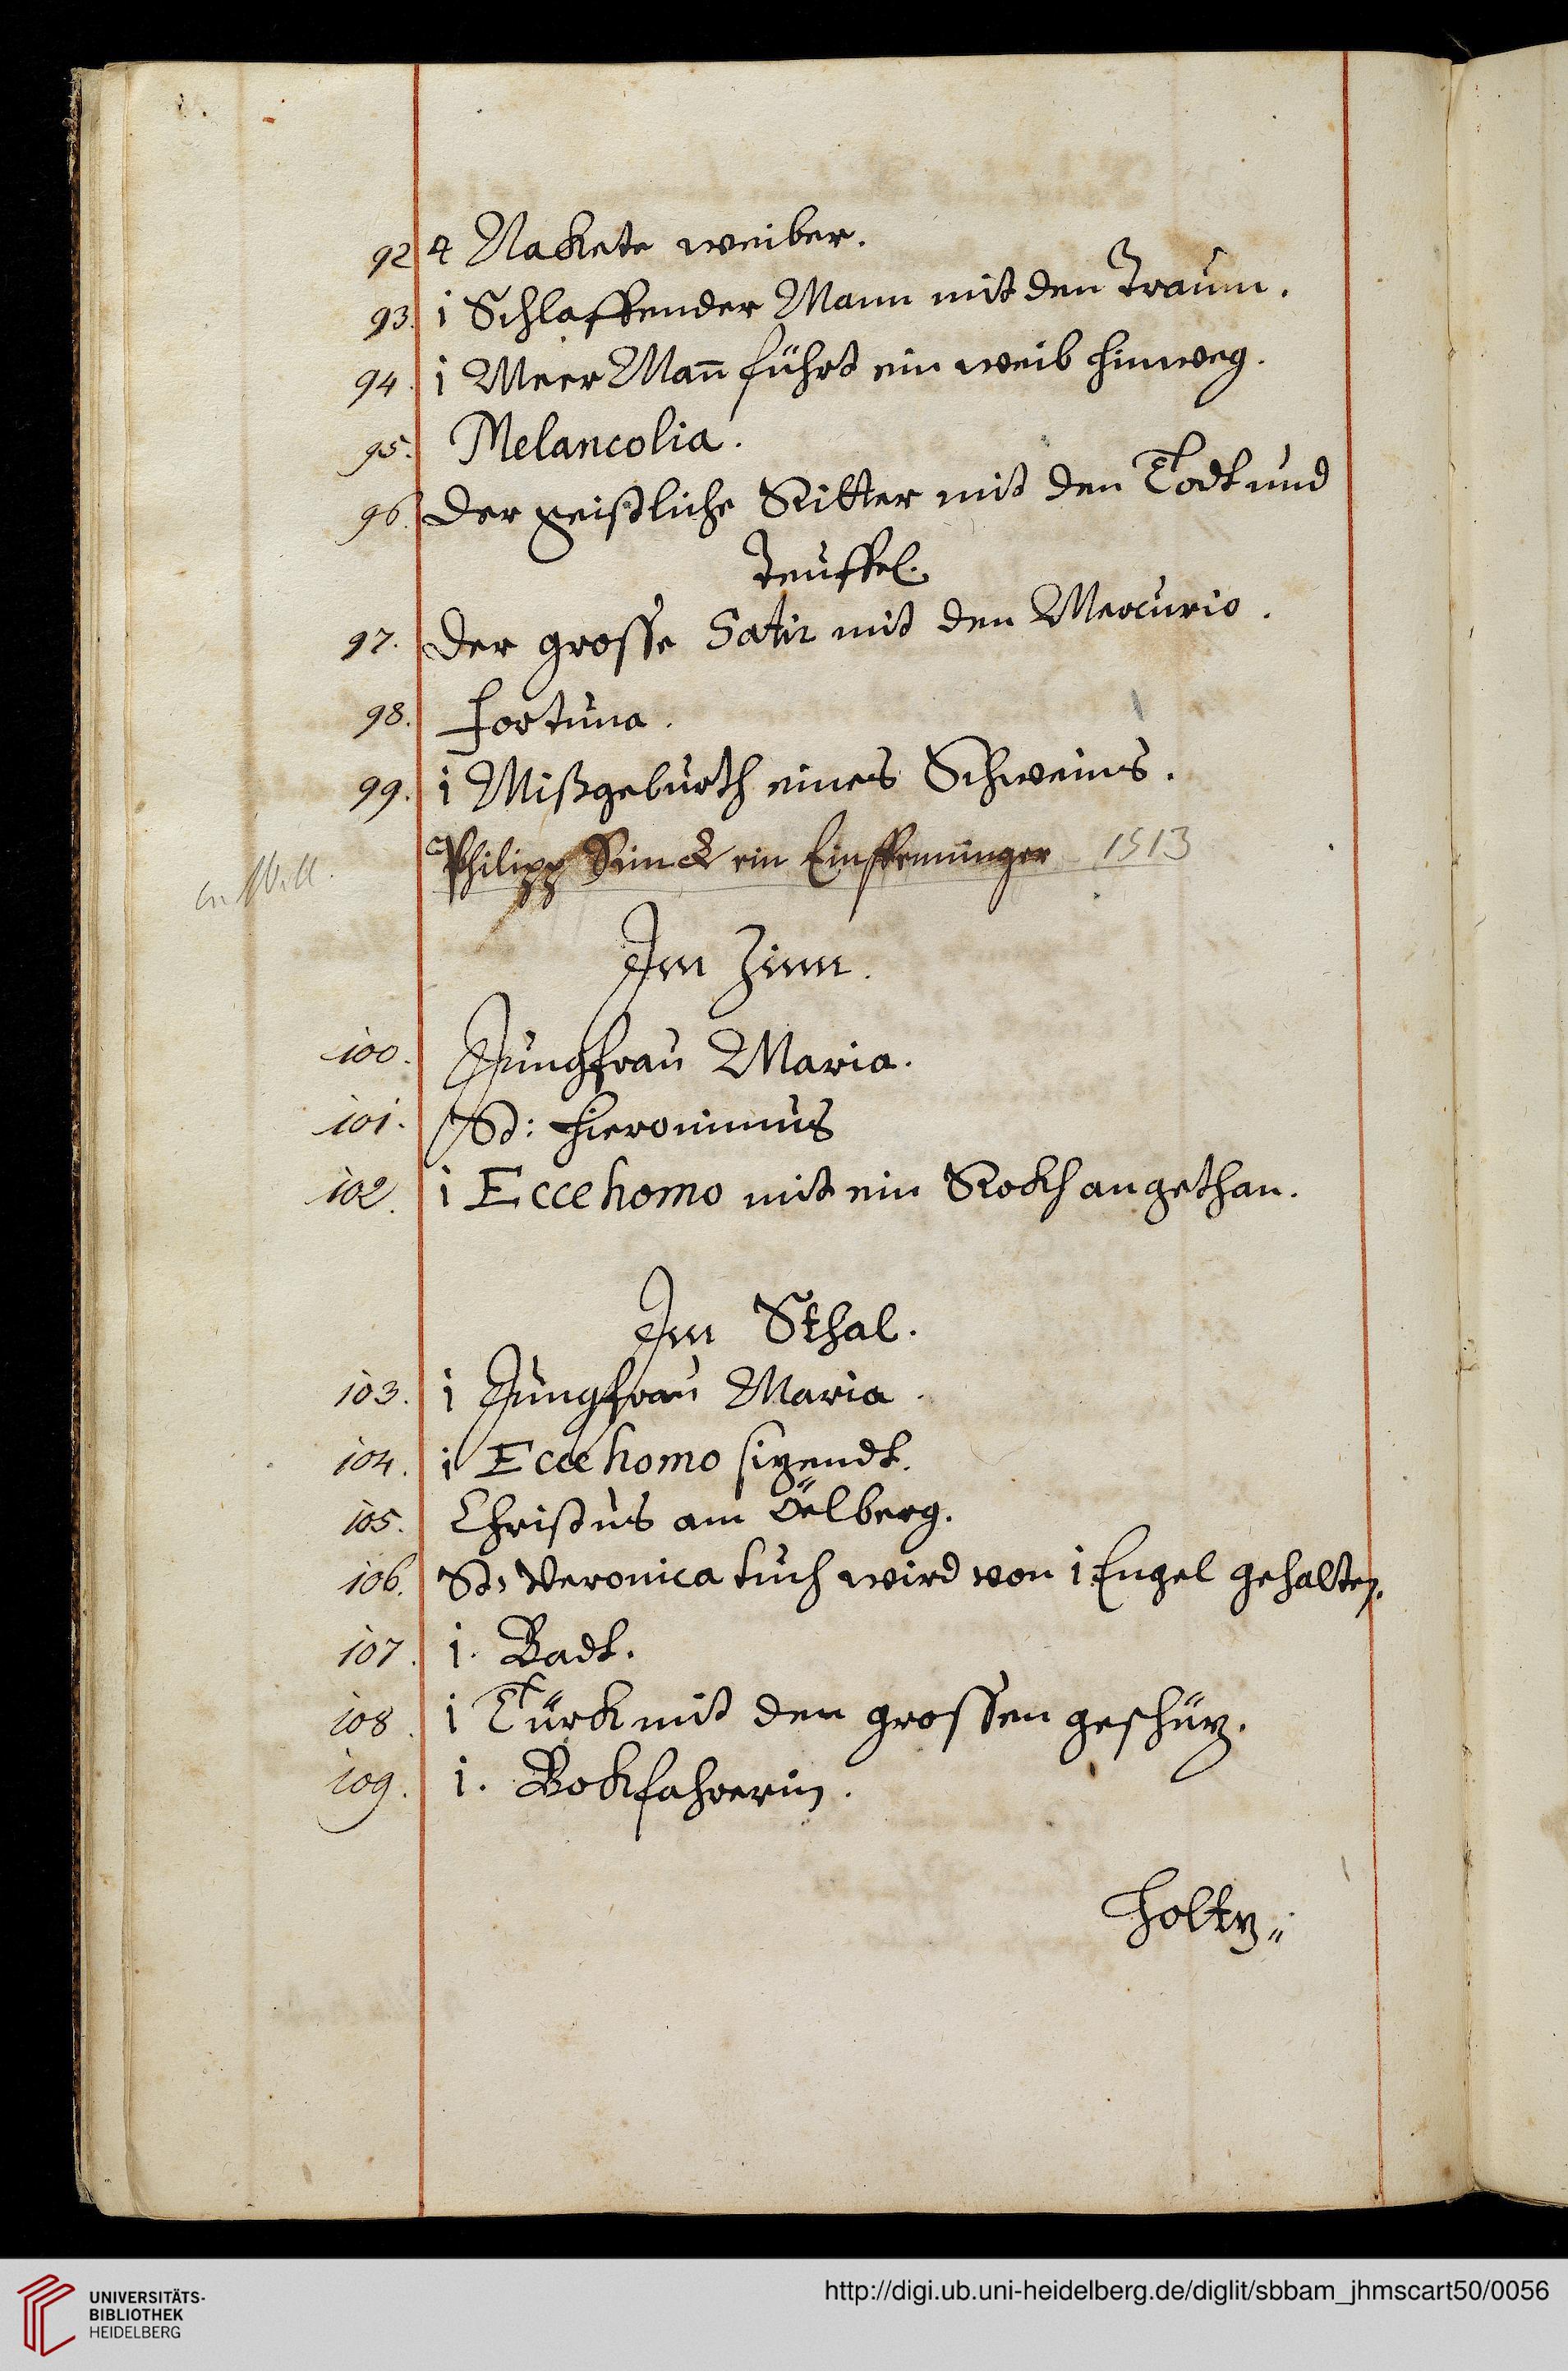 92 4 Nackete weiber.
93. 1 Schlaffender Mann mit den Traum.
94. 1 Meer Man̄ führt ein weib hinweg.
95. Melancolia.
96. der geistliche Ritter mit den Todt und
Teuffel.
97. der grosse Satir mit den Mercurio.
98. Fortuna.
99. 1 Mißgeburth eines Schweins.
Philipp Rinck ein Einspenninger 1513
Im Zinn.
100. Jungfrau Maria.
101. St: Hieronimus
102. 1 Ecce homo mit ein Rockh angethan.
Im Sthal.
103. 1 Jungfrau Maria.
104. 1 Ecce homo sizendt.
105. Christus am Öelberg.
106. St: Veronica tuch wird von 1 Engel gehalten.
107. 1. Badt.
108. 1 Türck mit den grossen geschüz.
109. 1. Bockfahrerin.
Holtz„
UNIVERSITÄTS-
BIBLIOTHEK
HEIDELBERG
http://digi.ub.uni-heidelberg.de/diglit/sbbam_jhmscart50/0056